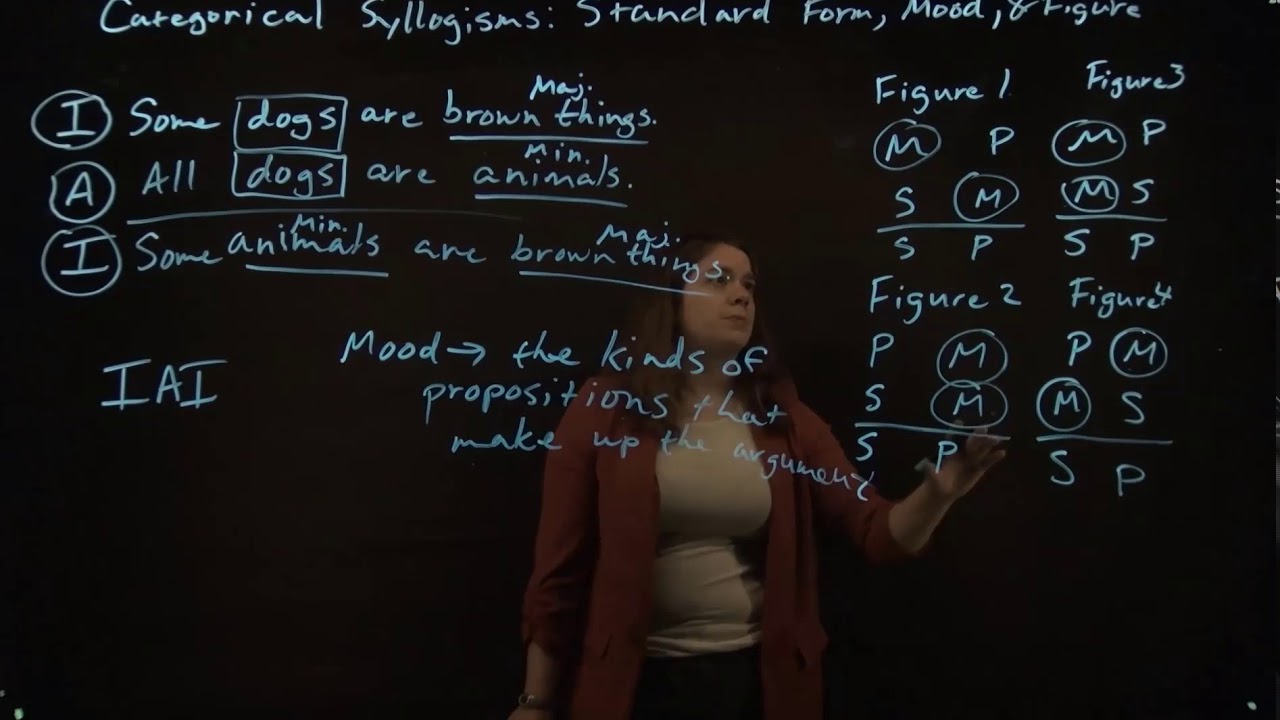 Categorical Syllogisms: Standard Form, Mood, & Figure
Maj.
I Some dogs are brown things.
Min.
A All dogs are animals.
Min. Maj.
I Some animals are brown things.
IAI
Mood → the kinds of
propositions that
make up the argument
Figure 1
M P
S M
S P
Figure 3
M P
M S
S P
Figure 2
P M
S M
S P
Figure 4
P M
M S
S P